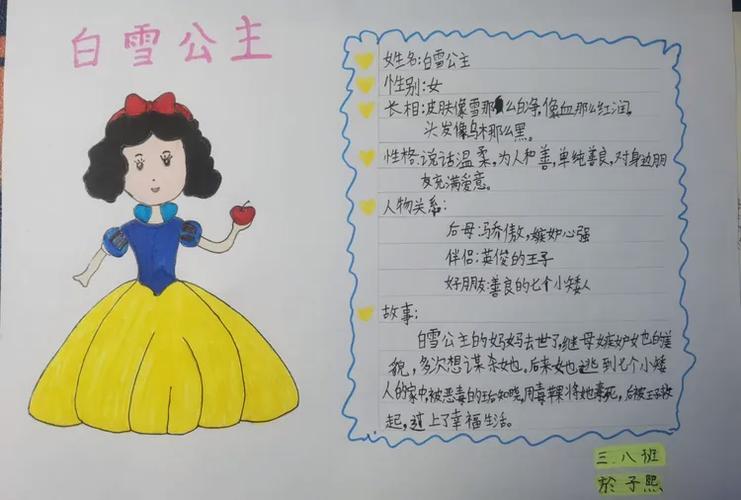 白雪公主
姓名:白雪公主
性别:女
长相:皮肤像雪那么白净,像血那么红润。
头发像乌木那么黑。
性格:说话温柔,为人和善,单纯善良,对身边朋
友充满爱意。
人物关系:
后母:冯骄傲,嫉妒心强
伴侣:英俊的王子
好朋友:善良的七个小矮人
故事:
白雪公主的妈妈去世了,继母嫉妒她的美
貌,多次想谋杀她。后来她逃到七个小矮
人的家中,被恶毒的王后知晓,用毒苹果将她毒死,后被王子救
起,过上了幸福生活。
三.八班
於子熙